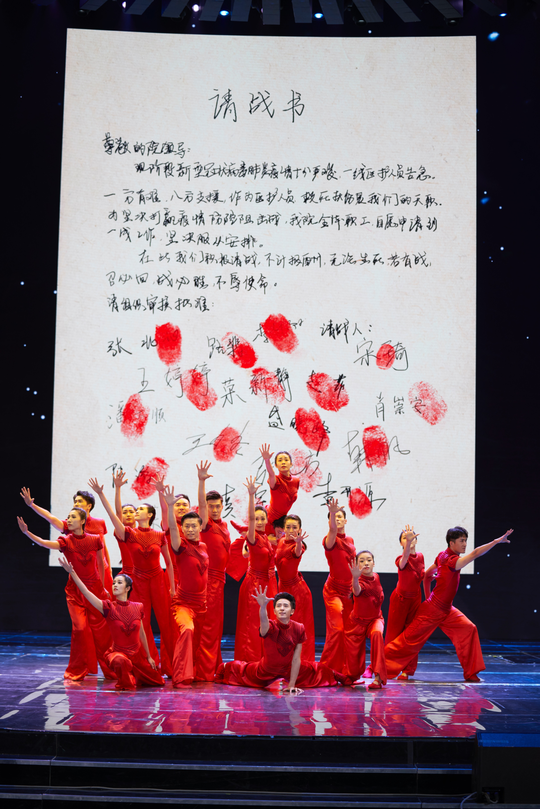 请战书
尊敬的院领导:
现阶段新型冠状病毒肺炎疫情十分严峻,一线医护人员告急。
一方有难,八方支援,作为医护人员救死扶伤是我们的天职,
为坚决打赢疫情防控阻击战,我院全体职工自愿申请到
一线工作,坚决服从安排。
在此我们积极请战,不计报酬,无论生死若有战,
召必回,战必胜,不辱使命。
请组织审核批准:
请战人:
张 宋琦
王婷婷 莱新静
潘 顺 肖崇
王
袁